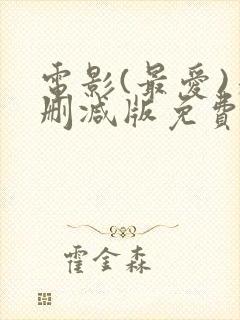 電影(最愛)
删减版免費
霍金森